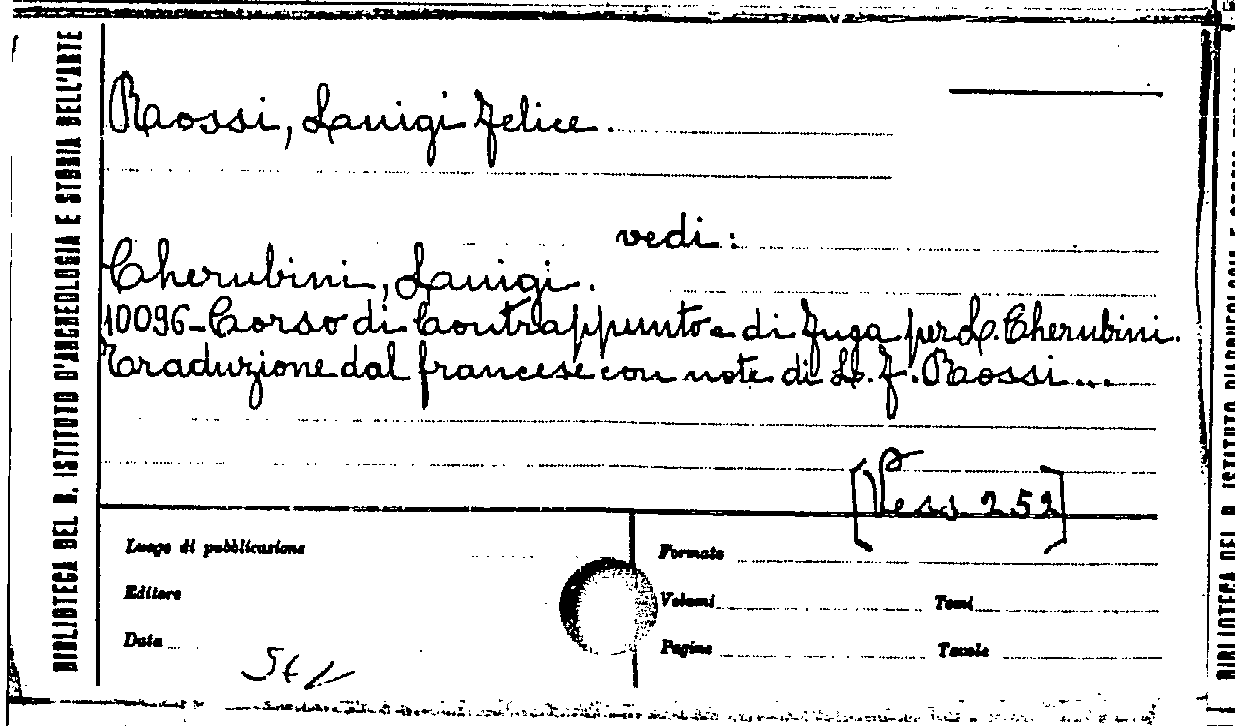 BIBLIOTECA DEL R. ISTITUTO D'ARCHEOLOGIA E STORIA DELL'ARTE
Rossi, Luigi Felice.
vedi:
Cherubini, Luigi.
10096-Corso di Contrappunto e di Fuga per L. Cherubini.
Traduzione dal francese con note di L. F. Rossi...
[Vess 252]
Luogo di pubblicazione
Formato
Editore
Volumi
Tomi
Data
Pagine
Tavole